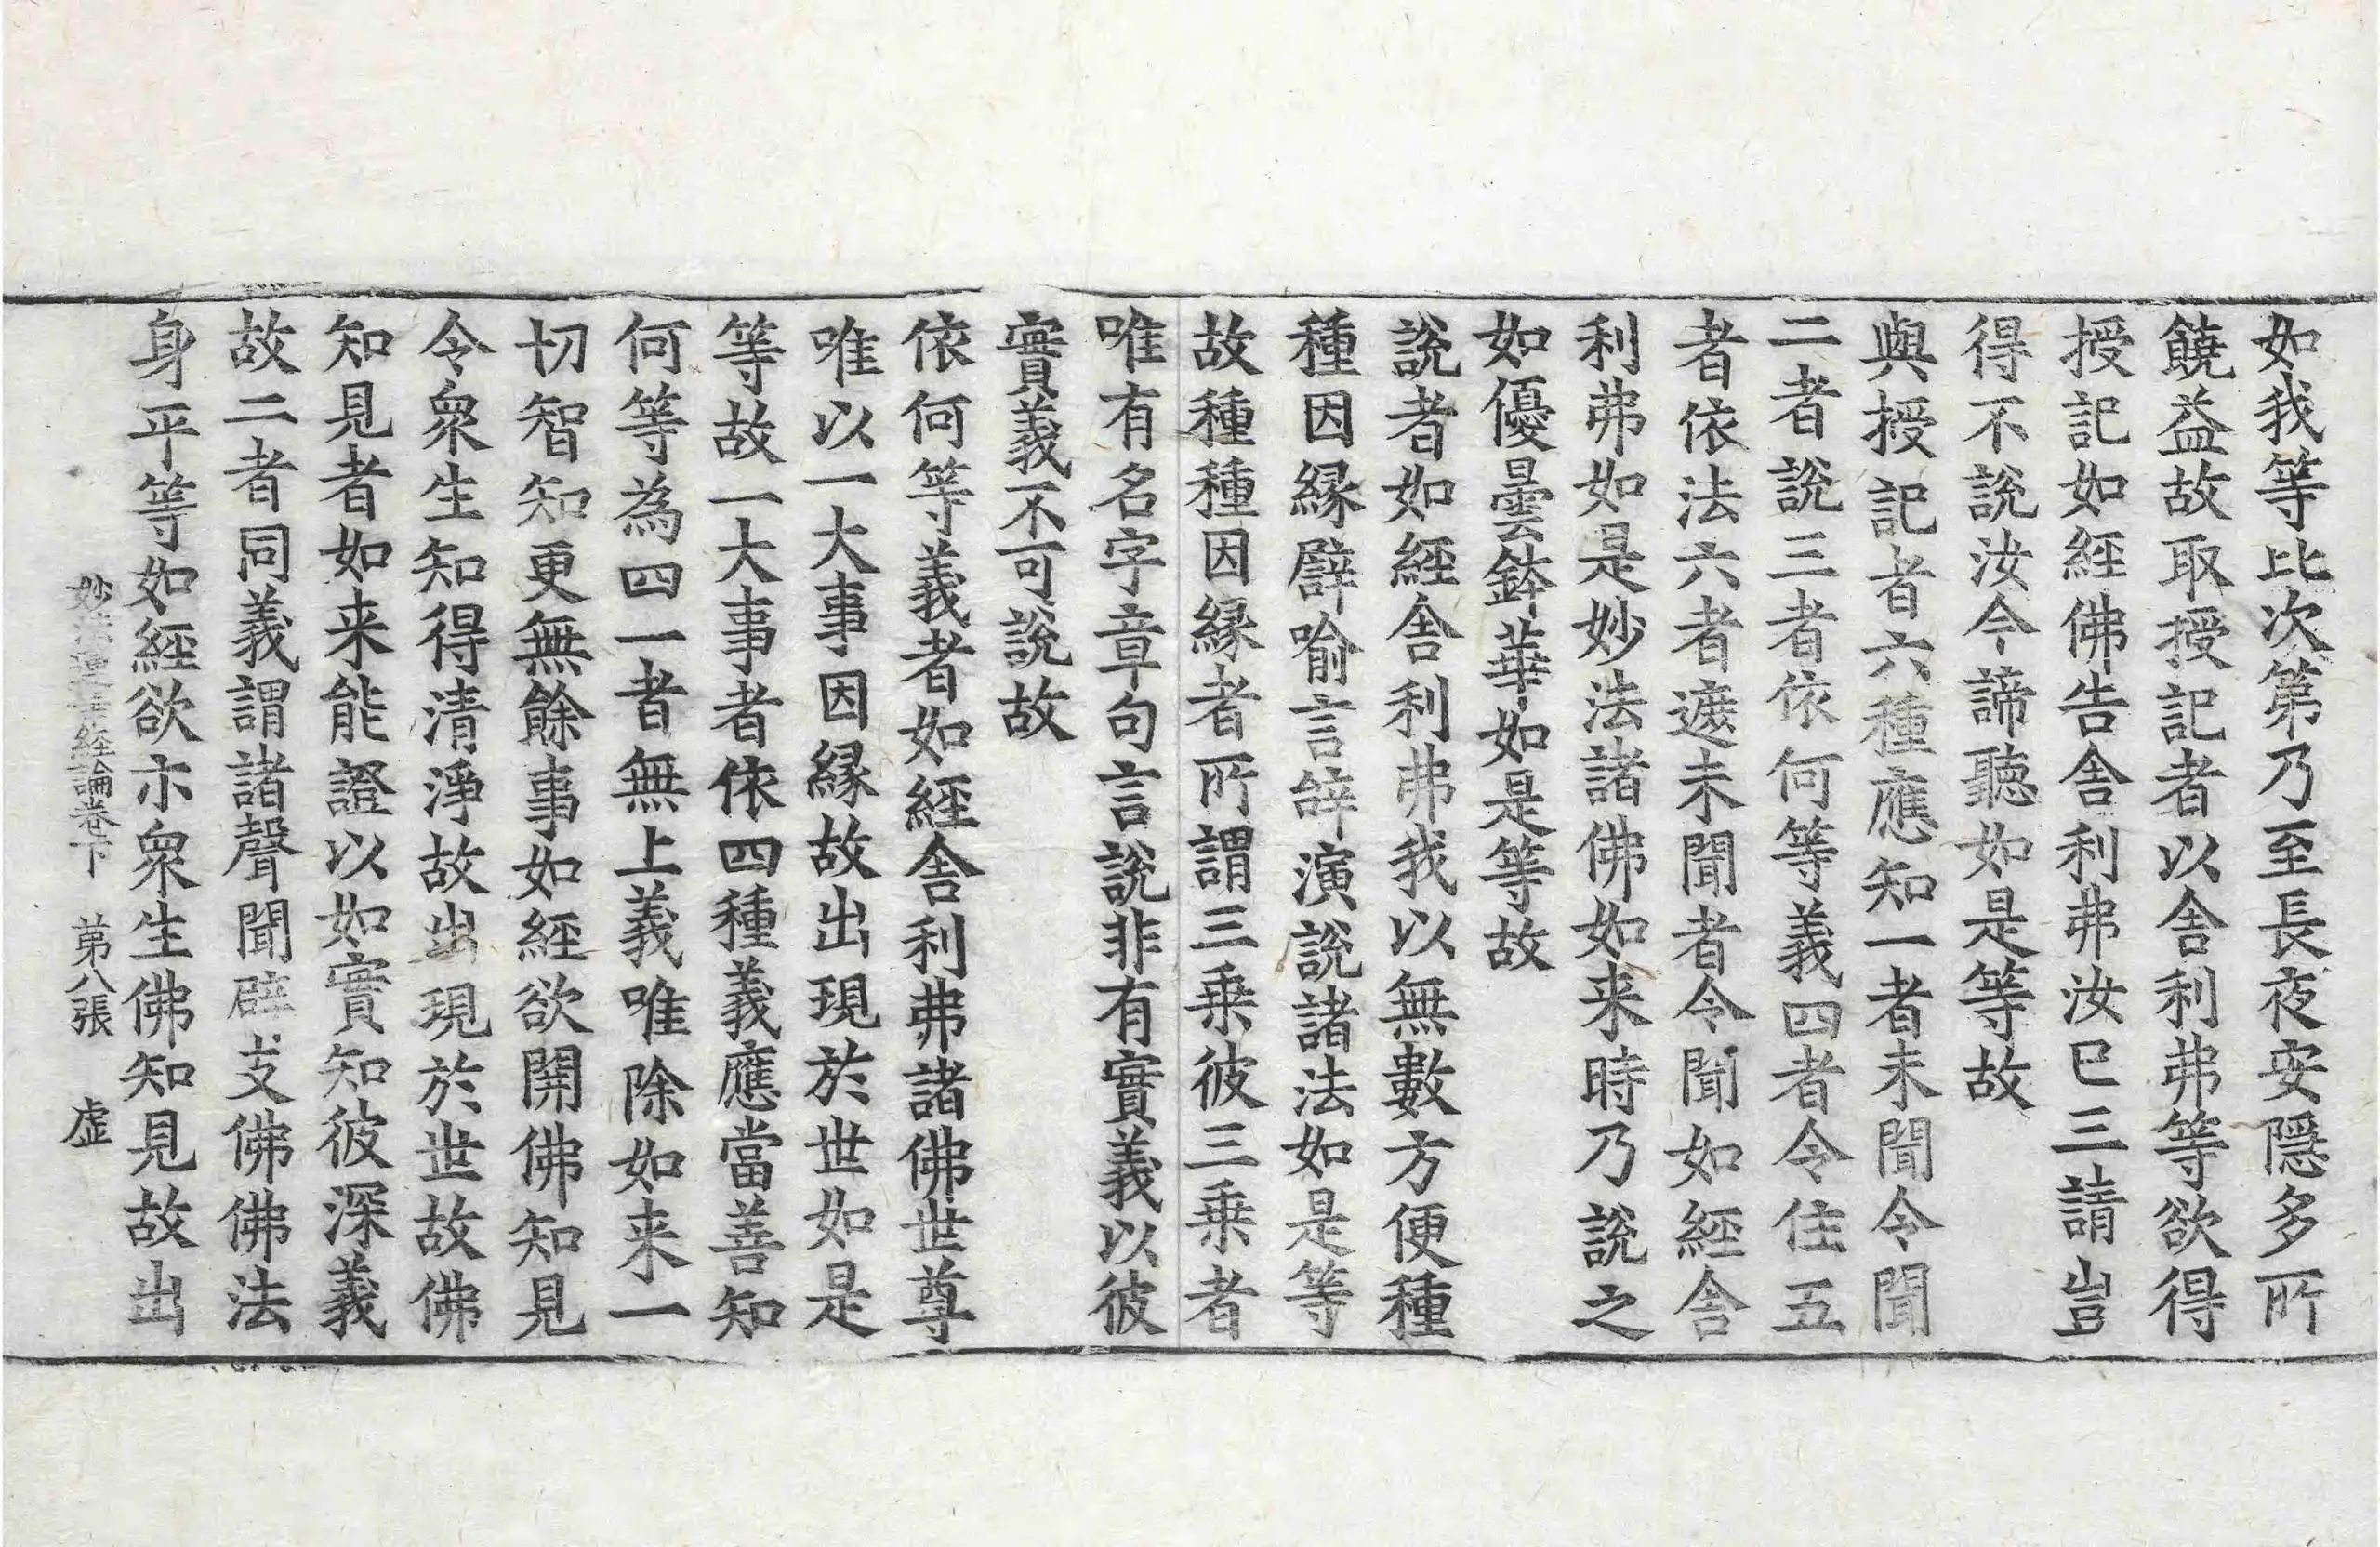 如我等比次第乃至長夜安隱多所
饒益故取授記者以舍利弗等欲得
授記如經佛告舍利弗汝已三請豈
得不說汝今諦聽如是等故
與授記者六種應知一者未聞令聞
二者說三者依何等義四者令住五
者依法六者遮未聞者令聞如經舍
利弗如是妙法諸佛如来時乃說之
如優曇鉢華如是等故
說者如經舍利弗我以無數方便種
種因縁譬喻言辞演說諸法如是等
故種種因縁者所謂三乗彼三乗者
唯有名字章句言說非有實義以彼
實義不可說故
依何等義者如經舍利弗諸佛世尊
唯以一大事因縁故出現於世如是
等故一大事者依四種義應當善知
何等為四一者無上義唯除如来一
切智知更無餘事如經欲開佛知見
令衆生知得清淨故出現於世故佛
知見者如来能證以如實知彼深義
故二者同義謂諸聲聞辟支佛佛法
身平等如經欲示衆生佛知見故出
妙法蓮華経論卷下 第八張 虚